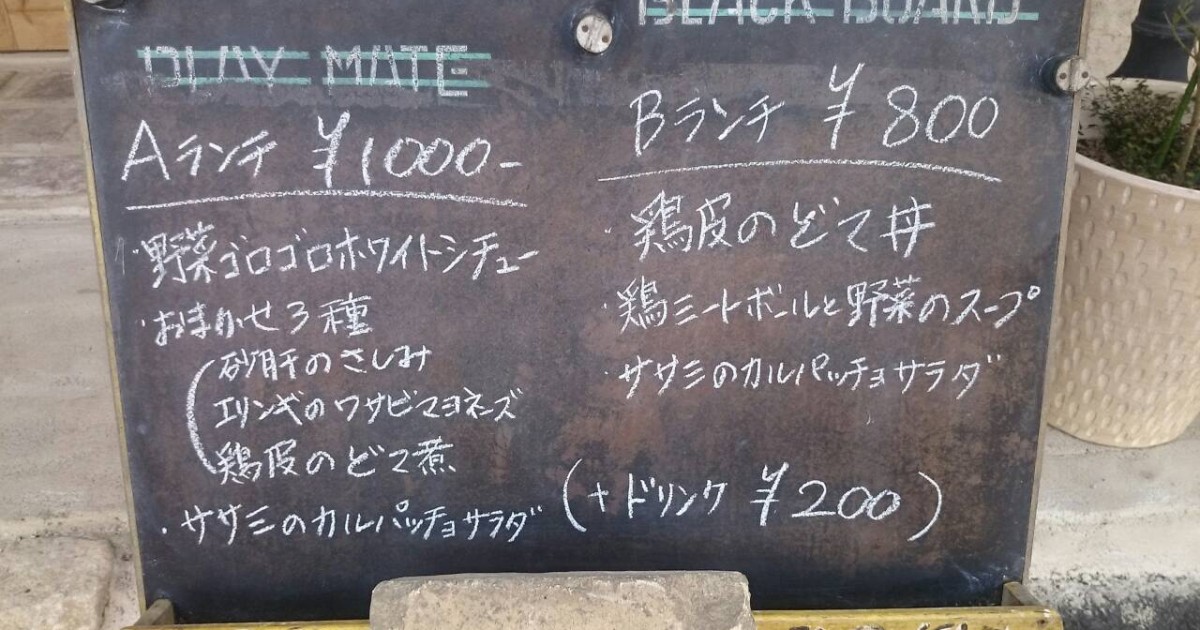 PLAY MATE
BLACK BOARD
Aランチ ¥1000-
・野菜ゴロゴロホワイトシチュー
・おまかせ3種
砂肝のさしみ
エリンギのワサビマヨネーズ
鶏皮のどて煮
・ササミのカルパッチョサラダ
Bランチ ¥800
・鶏皮のどて丼
・鶏ミートボールと野菜のスープ
・ササミのカルパッチョサラダ
(+ドリンク ¥200)